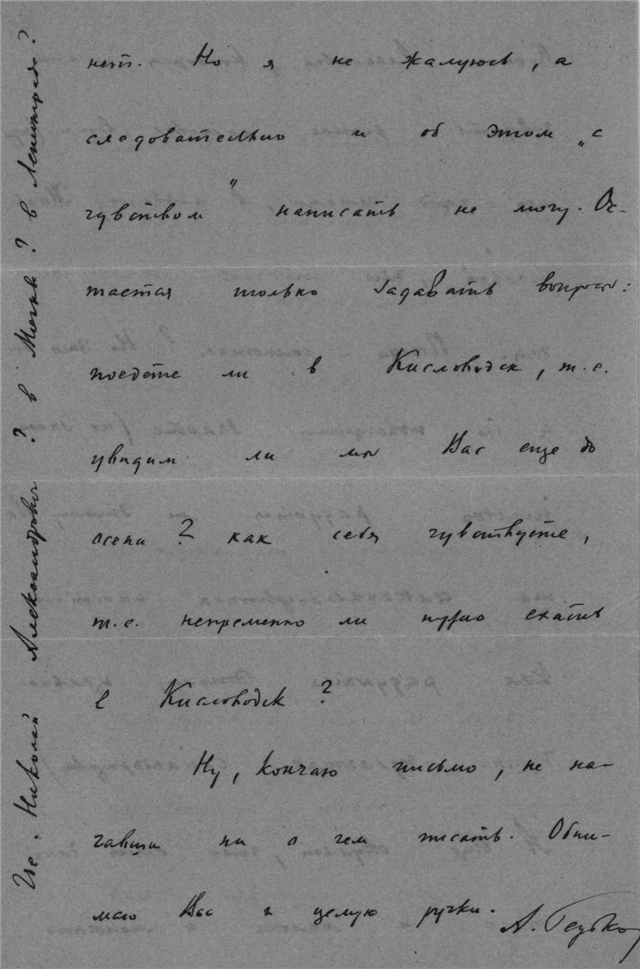 нет. Но я не жалуюсь, а
следовательно и об этом „с
чувством" написать не могу. Ос-
тается только задавать вопросы:
поедете ли в Кисловодск, т.е.
увидим ли мы Вас еще до
осени? как себя чувствуете,
т.е. непременно ли нужно ехать
в Кисловодск?
Ну, кончаю письмо, не на-
чавши ни о чем писать. Обни-
маю Вас и целую ручки.
Где Николай Александрович? в Москве? в Ленинграде?